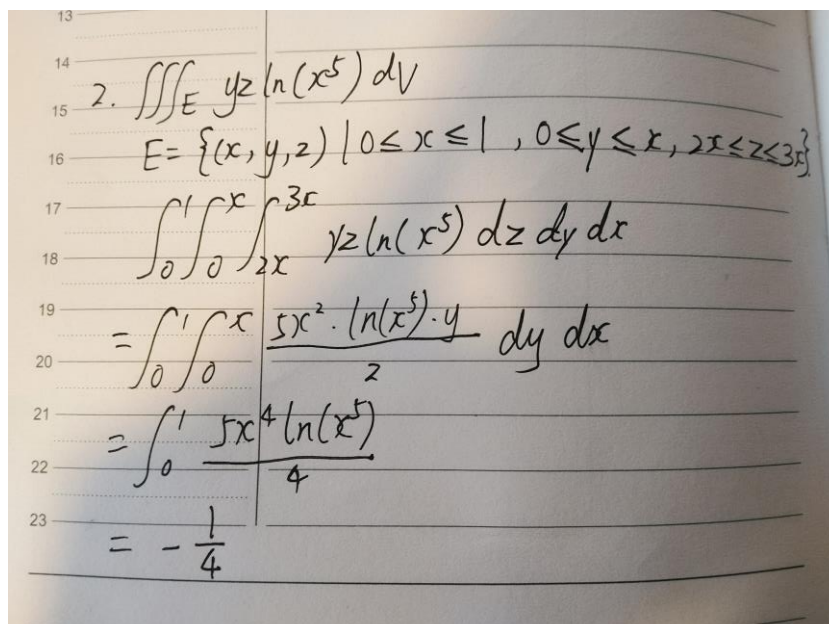 13
14
2. ∭_E yz ln(x⁵) dV
15
E = {(x, y, z) | 0 ≤ x ≤ 1 , 0 ≤ y ≤ x, 2x ≤ z ≤ 3x}
16
17
∫₀¹ ∫₀ˣ ∫₂ₓ³ˣ yz ln(x⁵) dz dy dx
18
19
= ∫₀¹ ∫₀ˣ (5x² · ln(x⁵) · y)/2 dy dx
20
21
= ∫₀¹ (5x⁴ ln(x⁵))/4
22
23
= - 1/4